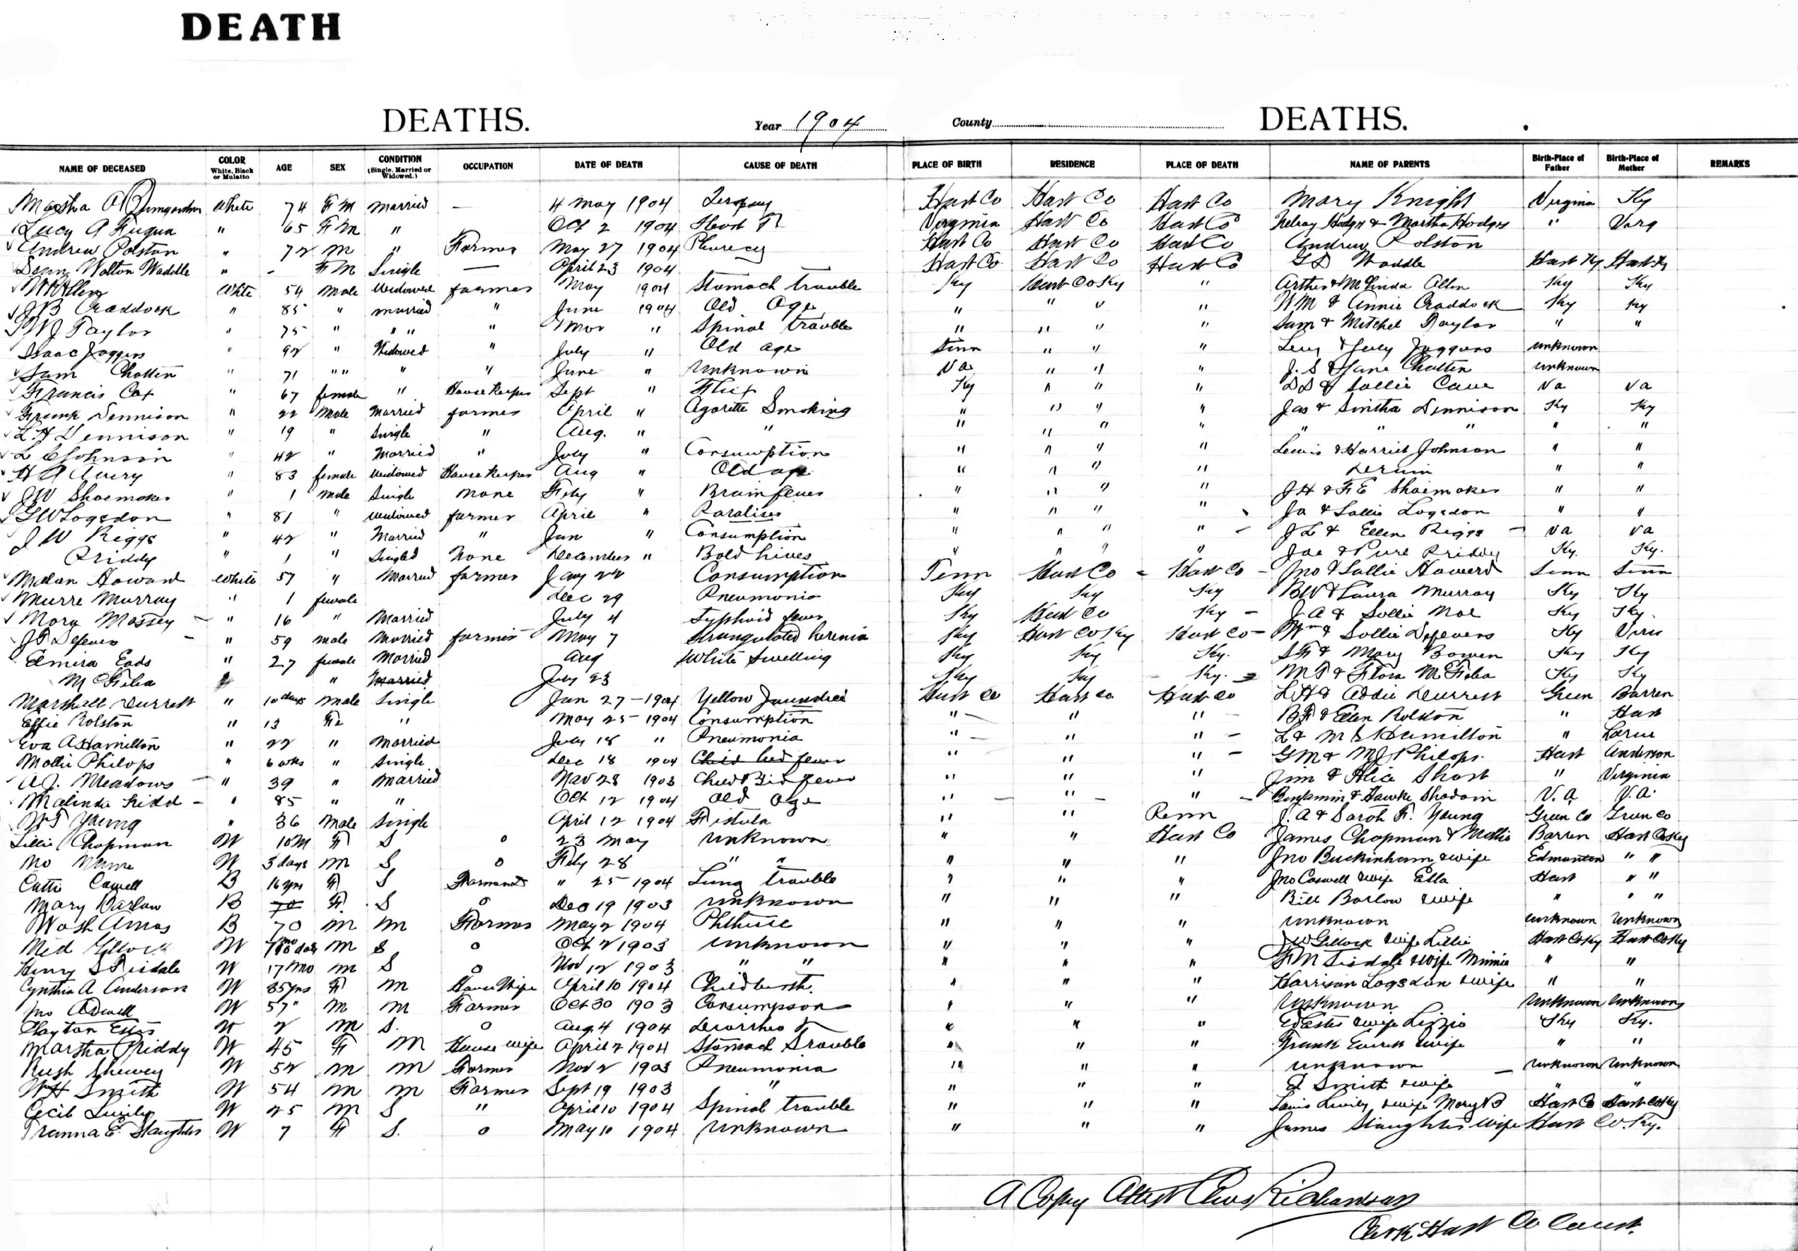 DEATH
DEATHS. Year 1904 County DEATHS.
NAME OF DECEASED COLOR White, Black or Mulatto AGE SEX CONDITION (Single, Married or Widowed.) OCCUPATION DATE OF DEATH CAUSE OF DEATH PLACE OF BIRTH RESIDENCE PLACE OF DEATH NAME OF PARENTS Birth-Place of Father Birth-Place of Mother REMARKS
Martha A White 74 F M Married — 4 May 1904 Hart Co Hart Co Hart Co Mary Knight Virginia Ky
Lucy A " 65 F M " Oct 2 1904 Virginia Hart Co Hart Co Hodges & Martha Hodges " Virg
Andrew Rolston " 72 M " Farmer May 27 1904 Hart Co Hart Co Hart Co Andrew Rolston
Walton Waddle " - F M Single — April 23 1904 Hart Co Hart Co Hart Co Waddle Hart Ky Hart Ky
White 54 Male Widowed farmer May 1904 Stomach trouble Ky Hart Co Ky " Arthur & Malinda Allen Ky Ky
J B Craddock " 85 " married " June 1904 Old Age " " " " WM & Annie Craddock Ky Ky
W J Taylor " 75 " " " " Mar " Spinal trouble " " " " Sam & Mitchel Taylor " "
Isaac Jaggers " 92 " Widowed " July " Old age Tenn " " " Levy & July Jaggers unknown
Sam Chattin " 71 " " " " June " Unknown Va " " " J. S & Jane Chattin unknown
Francis Cox " 67 female " House Keeper Sept " Ky " " " & Sallie Cave Va Va
Frank Dennison " 22 Male Married farmer April " Smoking " " " " Jas & Sintha Dennison Ky Ky
L H Dennison " 19 " Single " Aug. " " " " " " " " " "
L C Johnson " 42 " Married " July " Consumption " " " " Lewis & Harriet Johnson " "
H A " 83 female widowed House Keeper Aug " Old age " " " " " "
J W Shoemaker " 1 male Single none Feby " Brain fever " " " " J H & F E Shoemaker " "
G W Logsdon " 81 " widowed farmer April " Paralices " " " " Ja & Sallie Logsdon " "
J W Riggs " 42 " Married " Jan " Consumption " " " " - J L & Ellen Riggs - Va Va
Priddy " 1 " Single None December " Bold hives " " " " Joe & Priddy Ky. Ky.
Howard White 57 " Married farmer Jany 22 Consumption Tenn Hart Co - Hart Co - Jno & Sallie Howard Tenn Tenn
Murre Murray " 1 female Dec 29 Pneumonia Ky Ky Ky B W & Laura Murray Ky Ky
Mary Massey - " 16 " Married July 4 Typhoid fever Ky Hart Co Ky - J. A & Sallie Ky Ky.
J F Defever - " 59 male Married farmer May 7 Strangulated hernia Ky Hart Co Ky Hart Co - Wm & Sallie Defevers Ky
Elmira Eads " 27 female Married Aug White Swelling Ky Ky Ky. & Mary Bowen Ky Ky
" Married July 23 Ky Ky Ky. M T & Flora Ky Ky
Marshall Durrett " 10 days male Single Jan 27 - 1904 Yellow Jaundice Hart Co Hart Co Hart Co L. H & Addie Durrett Green Barren
Effie Rolston " 13 Fe " May 25 - 1904 Consumption " - " " - B F & Ellen Rolston " Hart
Eva A Hamilton " 22 " Married July 18 " Pneumonia " - " " - L & M S Hamilton " Larue
Mollie Philops " 6 wks " Single Dec 18 1904 Child bed fever " " " - G M & M J Philops Hart Anderson
A. J. Meadows - " 39 " Married Nov 28 1903 Child Bed fever " " " Jim & Alice Short " Virginia
Malinda Kidd - " 85 " " Oct 12 1904 Old Age " — " — " — Benjamin & V. A. V. A.
W T Young " 36 Male Single April 12 1904 Fistula " " Penn J. A & Sarah F. Young Green Co Green Co
Lillie Chapman W 10 M F S o 23 May Unknown " " Hart Co James Chapman & Mollie Barren Hart Co Ky
No Name W 3 days M S o Feby 28 " " " " " Jno Buckinham & wife Edmonton " "
W Caswell B 16 yrs F S " 25 - 1904 Lung trouble " " " Jno Caswell wife Ella Hart " "
Mary Barlow B 70 F. S o Dec 19 1903 Unknown " " " Bill Barlow & wife " "
Wash Amos B 70 M M Farmer May 2 1904 " " " Unknown Unknown Unknown
W M S o Oct 2 1903 Unknown " " " J W Gillock wife Lillie Hart Co Ky Hart Co Ky
Henry S Tisdale W 17 Mo M S o Nov 12 1903 " " " " " F M Tisdale & wife Minnie " "
Cynthia A Anderson W 35 yrs F M House Wife April 10 1904 Childbirth. " " " Harrison Logsdon & wife " "
Jno W 57 " M M Farmer Oct 30 1903 Consumpson " " " Unknown Unknown Unknown
Clayton Estes W 2 M S. o Aug. 4 1904 " " " Ed Estes & wife Lizzie Ky Ky.
Martha Priddy W 45 F M House wife April 2 1904 Stomach Trouble " " " Frank Everett & wife " "
Rush W 52 M M Farmer Nov 2 1903 Pneumonia " " " unknown - Unknown Unknown
W H Smith W 54 M M Farmer Sept 19 1903 " " " " Smith & wife " "
Cecil W 25 M S " April 10 1904 Spinal trouble " " " & wife Mary B Hart Co Hart Co Ky
E. Slaughter W 7 F S. o May 10 1904 Unknown " " " James Slaughter wife Hart Co. Ky.
A Copy Attest Richardson
Clerk Hart Co Court.